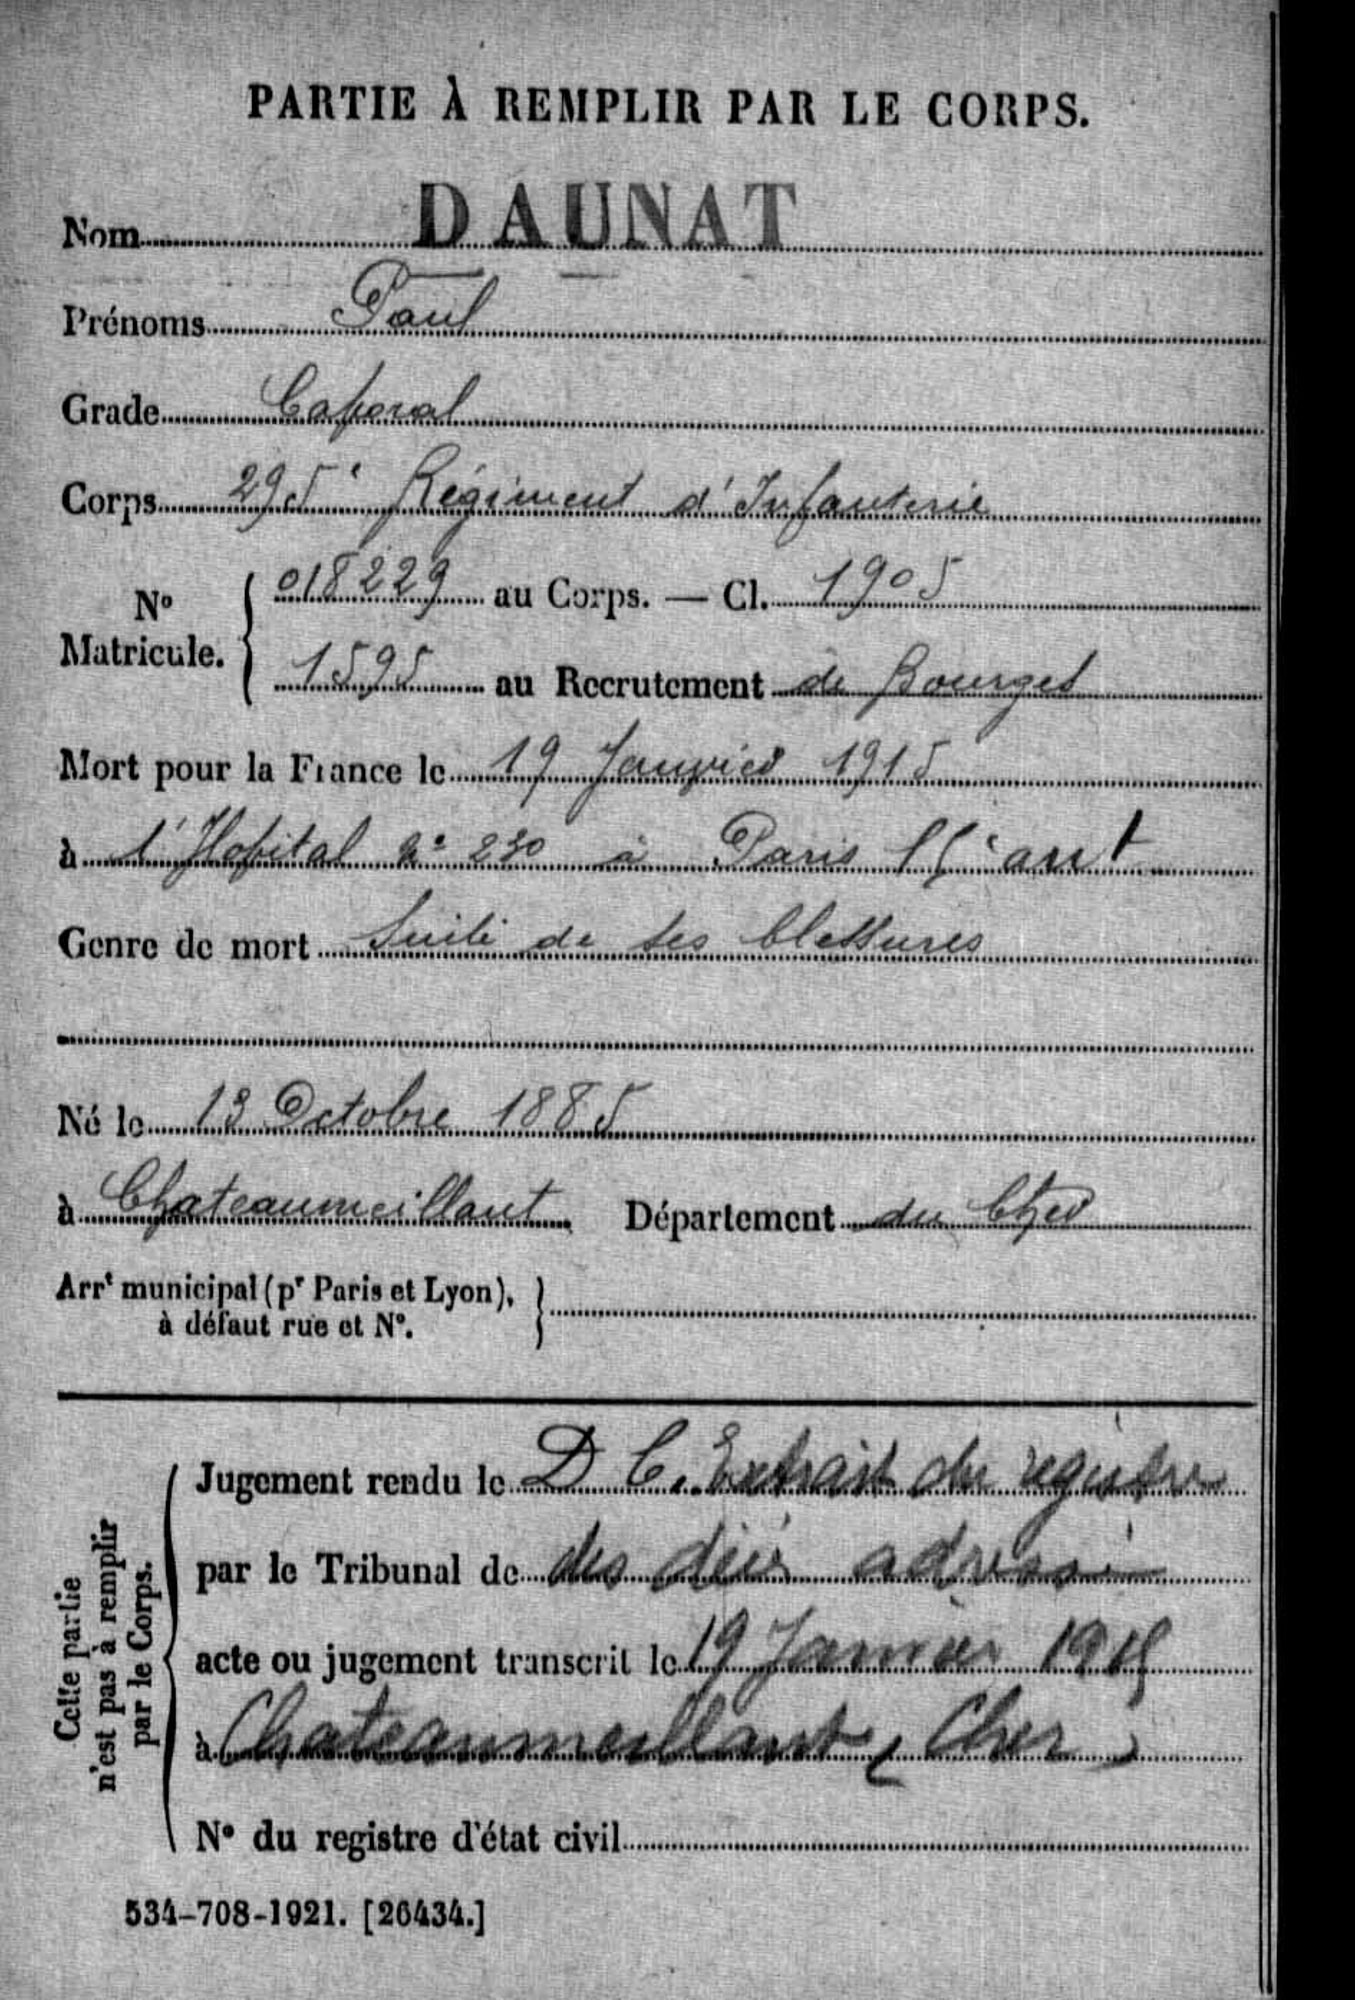 PARTIE À REMPLIR PAR LE CORPS.
Nom DAUNAT
Prénoms Paul
Grade Caporal
Corps 295e Régiment d'Infanterie
No Matricule. { 018229 au Corps. — Cl. 1905
1595 au Recrutement de Bourges
Mort pour la France le 19 Janvier 1915
à l'Hopital No 230 à Paris 15e arrt
Genre de mort Suite de ses blessures
Né le 13 Octobre 1885
à Chateaumeillant Département du Cher
Arrt municipal (pr Paris et Lyon), à défaut rue et No. }
Cette partie n'est pas à remplir par le Corps.
Jugement rendu le D C. Extrait du registre
par le Tribunal de des adressé
acte ou jugement transcrit le 19 Janvier 1915
à Chateaumeillant (Cher)
No du registre d'état civil
534-708-1921. [26434.]